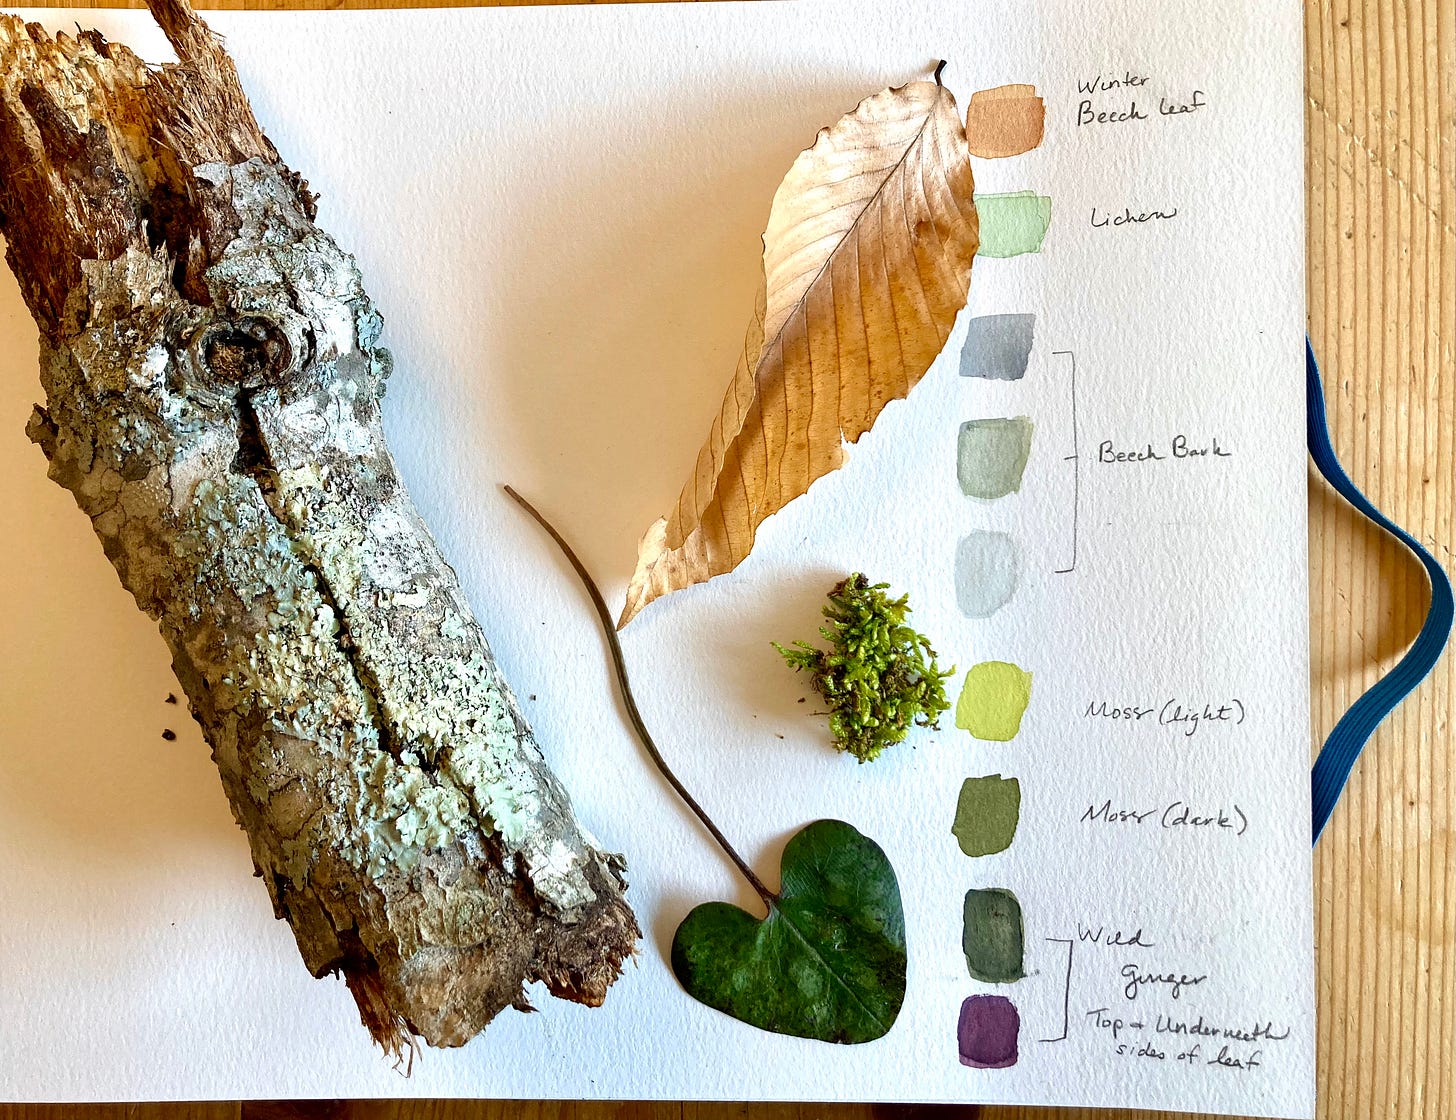 Winter
Beech leaf
Lichen
Beech Bark
Moss (light)
Moss (dark)
Wild
Ginger
Top + Underneeth
sides of leaf